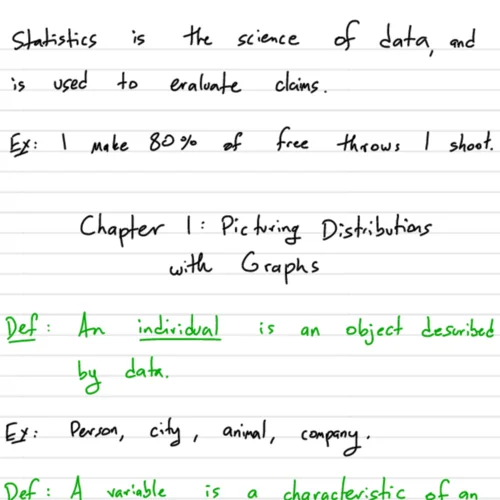 Statistics is the science of data, and
is used to evaluate claims.
Ex: I make 80% of free throws I shoot.
Chapter 1: Picturing Distributions
with Graphs
Def: An individual is an object described
by data.
Ex: Person, city, animal, company.
Def: A variable is a characteristic of an